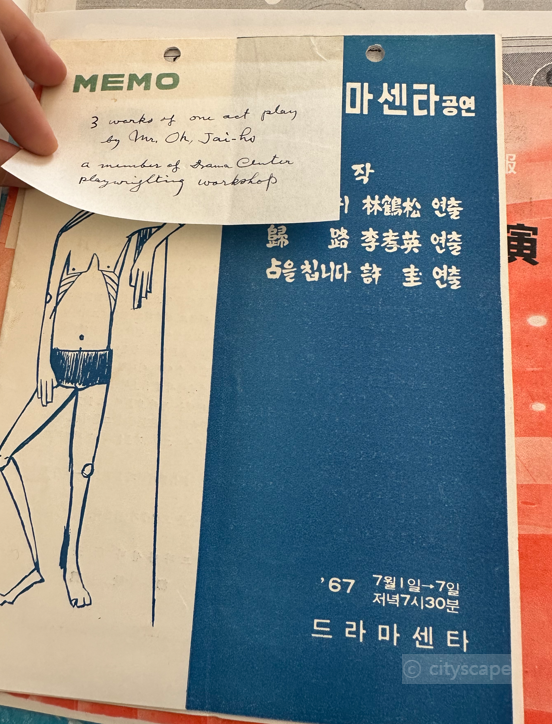 MEMO
3 works of one act play
by Mr. Oh, Jai-ho
a member of Drama Center
playwrighting workshop
마센타공연
작
林鶴松 연출
歸 路 李孝英 연출
占을 칩니다 許 圭 연출
'67 7월1일→7일
저녁7시30분
드라마센타
報
寅
© cityscape